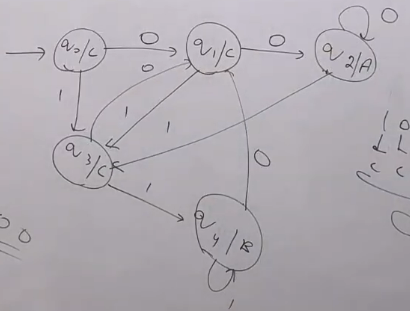 0
q0/C 0 q1/C 0 q2/A
0
1 1 1
q3/C
1 0
q4/B
1
1 0
C C
0 0